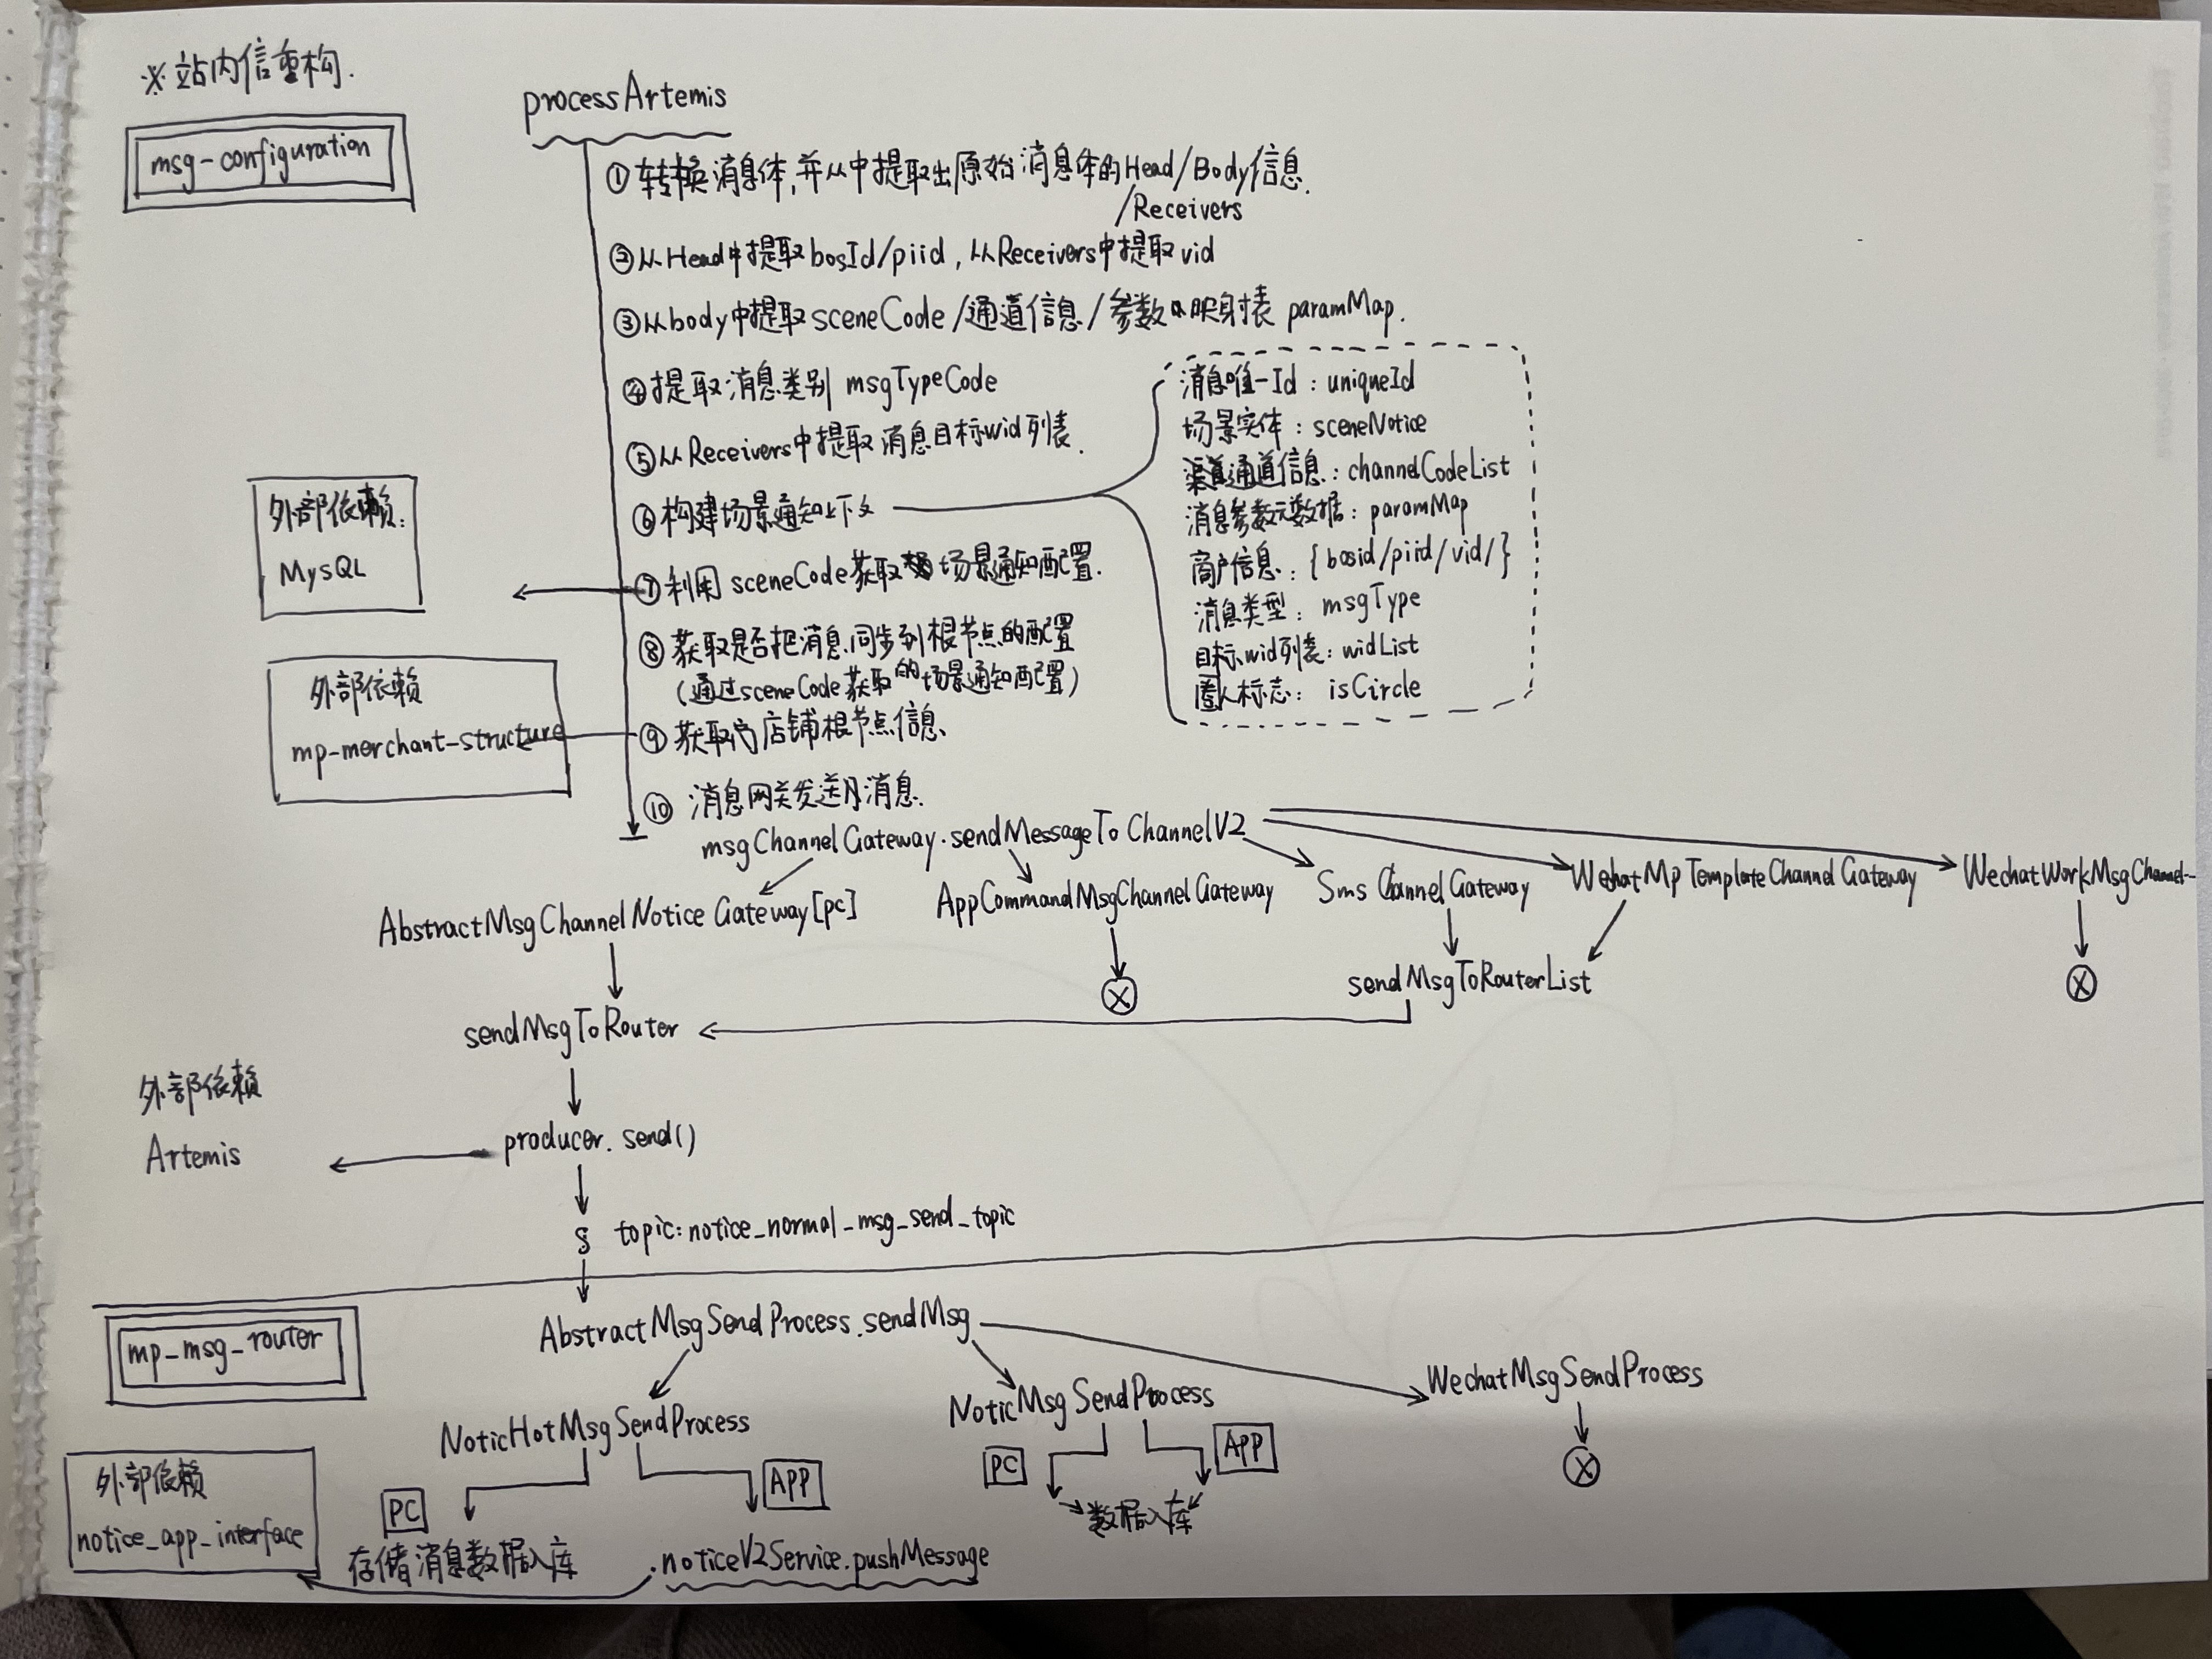 ※ 站内信重构.
msg-configuration
processArtemis
① 转换消息体,并从中提取出原始消息体的Head/Body信息.
/Receivers
② 从Head中提取bosId/piid,从Receivers中提取vid
③ 从body中提取sceneCode/通道信息/参数映射表 paramMap.
④ 提取消息类别 msgTypeCode
⑤ 从Receivers中提取消息目标wid列表.
⑥ 构建场景通知上下文
消息唯一Id:uniqueId
场景实体:sceneNotice
通道信息:channelCodeList
消息参数元数据:paramMap
商户信息:{bosid/piid/vid/}
消息类型:msgType
目标wid列表:widList
圈人标志:isCircle
外部依赖:
MysQL
⑦ 利用 sceneCode获取场景通知配置.
⑧ 获取是否把消息同步到根节点的配置
(通过sceneCode获取的场景通知配置)
外部依赖
mp-merchant-structure
⑨ 获取店铺根节点信息.
⑩ 消息网关发送消息.
msgChannelGateway.sendMessageToChannelV2
AbstractMsgChannelNoticeGateway[pc]
AppCommandMsgChannelGateway
SmsChannelGateway
WechatMpTemplateChannelGateway
WechatWorkMsgChannel--
sendMsgToRouterList
sendMsgToRouter
外部依赖
Artemis
producer.send()
topic:notice_normal_msg_send_topic
mp_msg_router
AbstractMsgSendProcess.sendMsg
NoticHotMsgSendProcess
NoticMsgSendProcess
WechatMsgSendProcess
PC
APP
PC
APP
数据入库
外部依赖
notice_app_interface
存储消息数据入库
.noticeV2Service.pushMessage